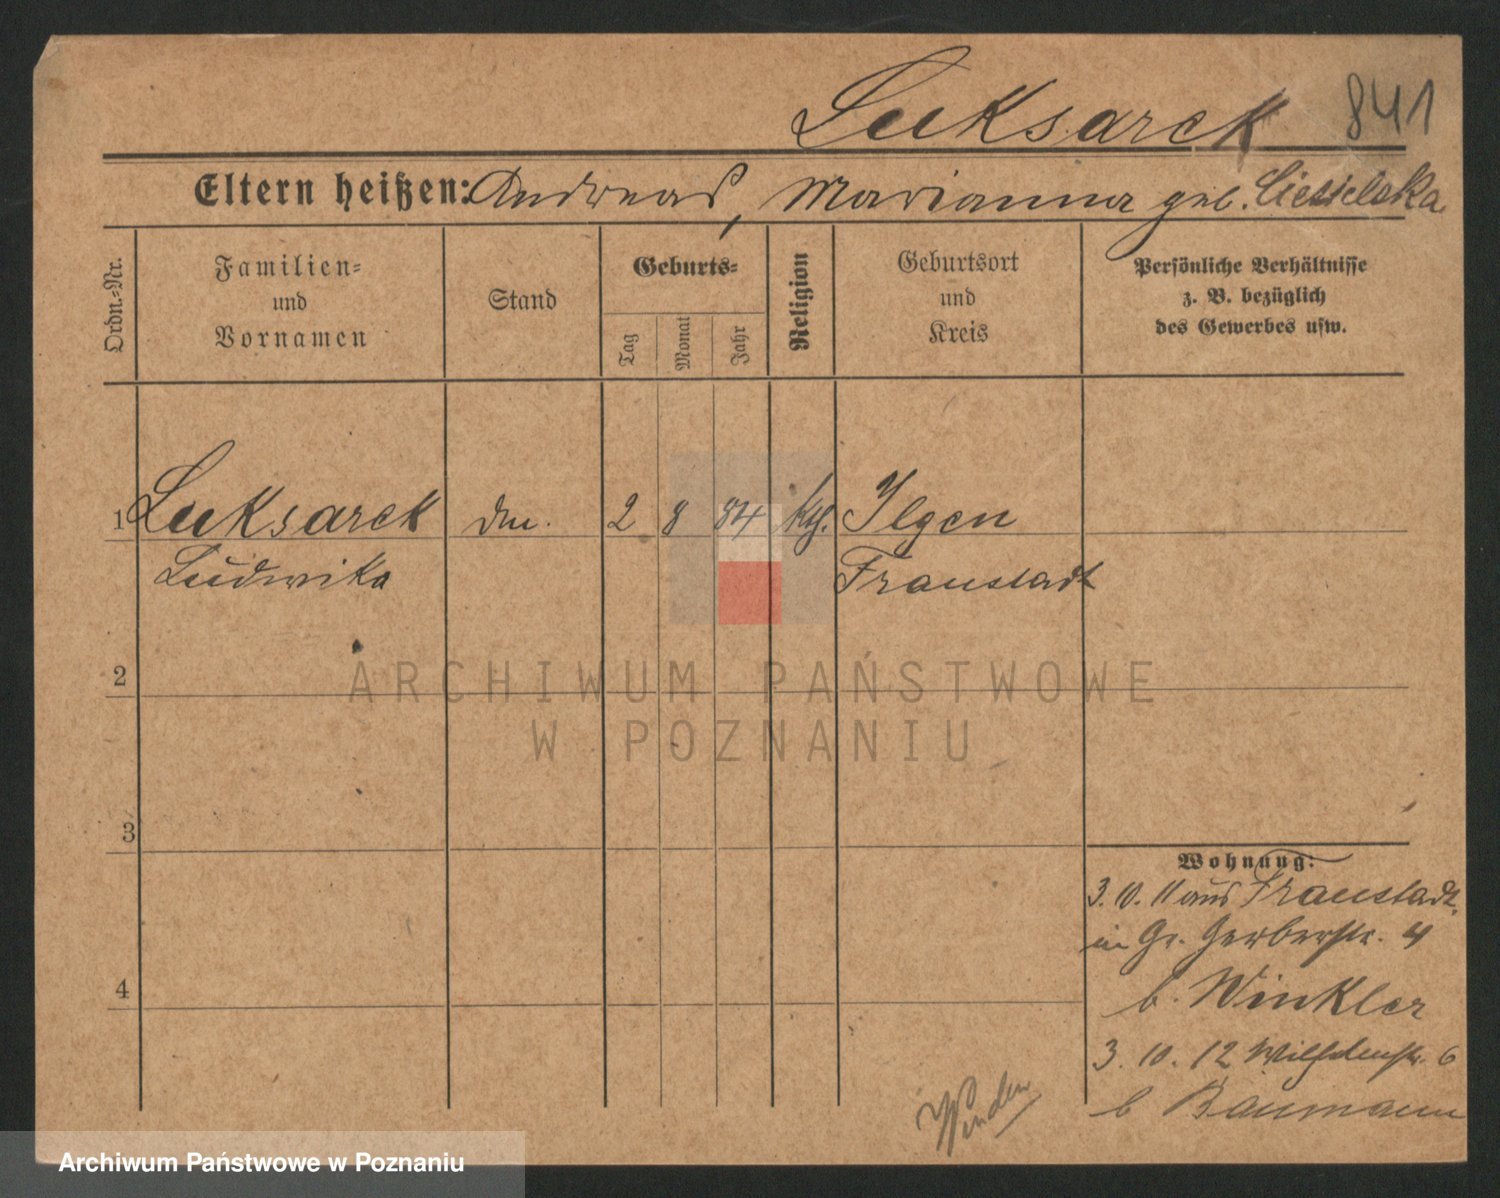 Luksarek 841
Eltern heißen: Andreas, Marianna geb. Ciesielska
Ordn.-Nr.
Familien-
und
Vornamen
Stand
Geburts-
Tag
Monat
Jahr
Religion
Geburtsort
und
Kreis
Persönliche Verhältnisse
z. B. bezüglich
des Gewerbes usw.
1 Luksarek 2 8 84 Ilgen
Ludwika Fraustadt
2
3
4
Wohnung:
3. 10. 11 aus Fraustadt
in Gr. Gerberstr. 4
b. Winkler
3. 10. 12 6
b Baumann
Wenden
ARCHIWUM PAŃSTWOWE
W POZNANIU
Archiwum Państwowe w Poznaniu